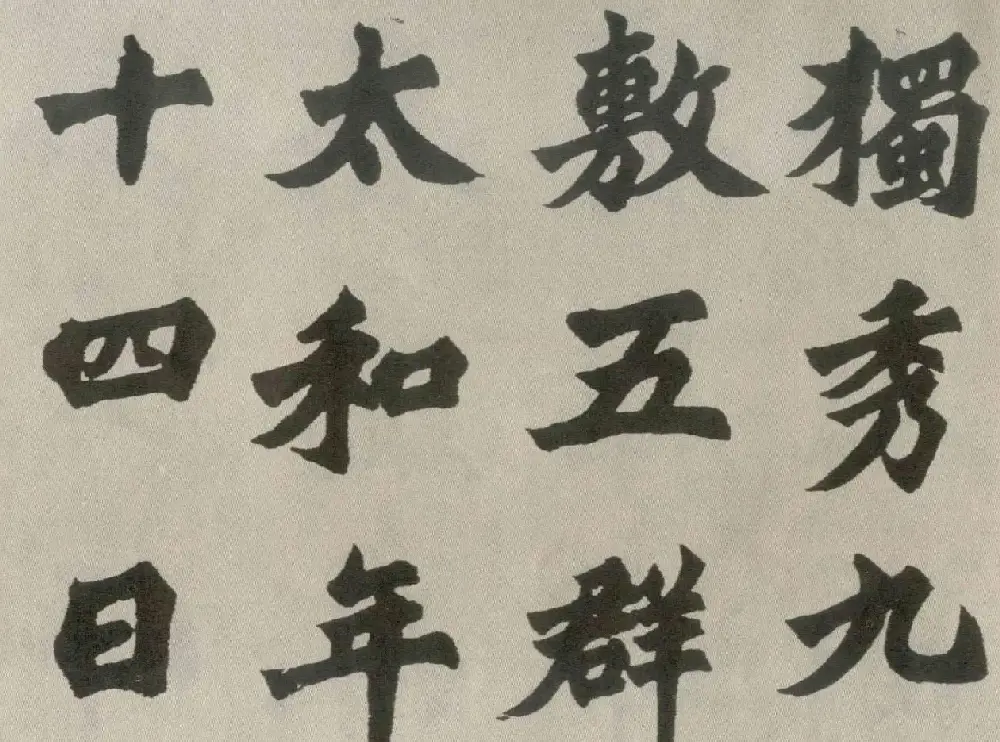 獨秀九
敷五群
太和年
十四日